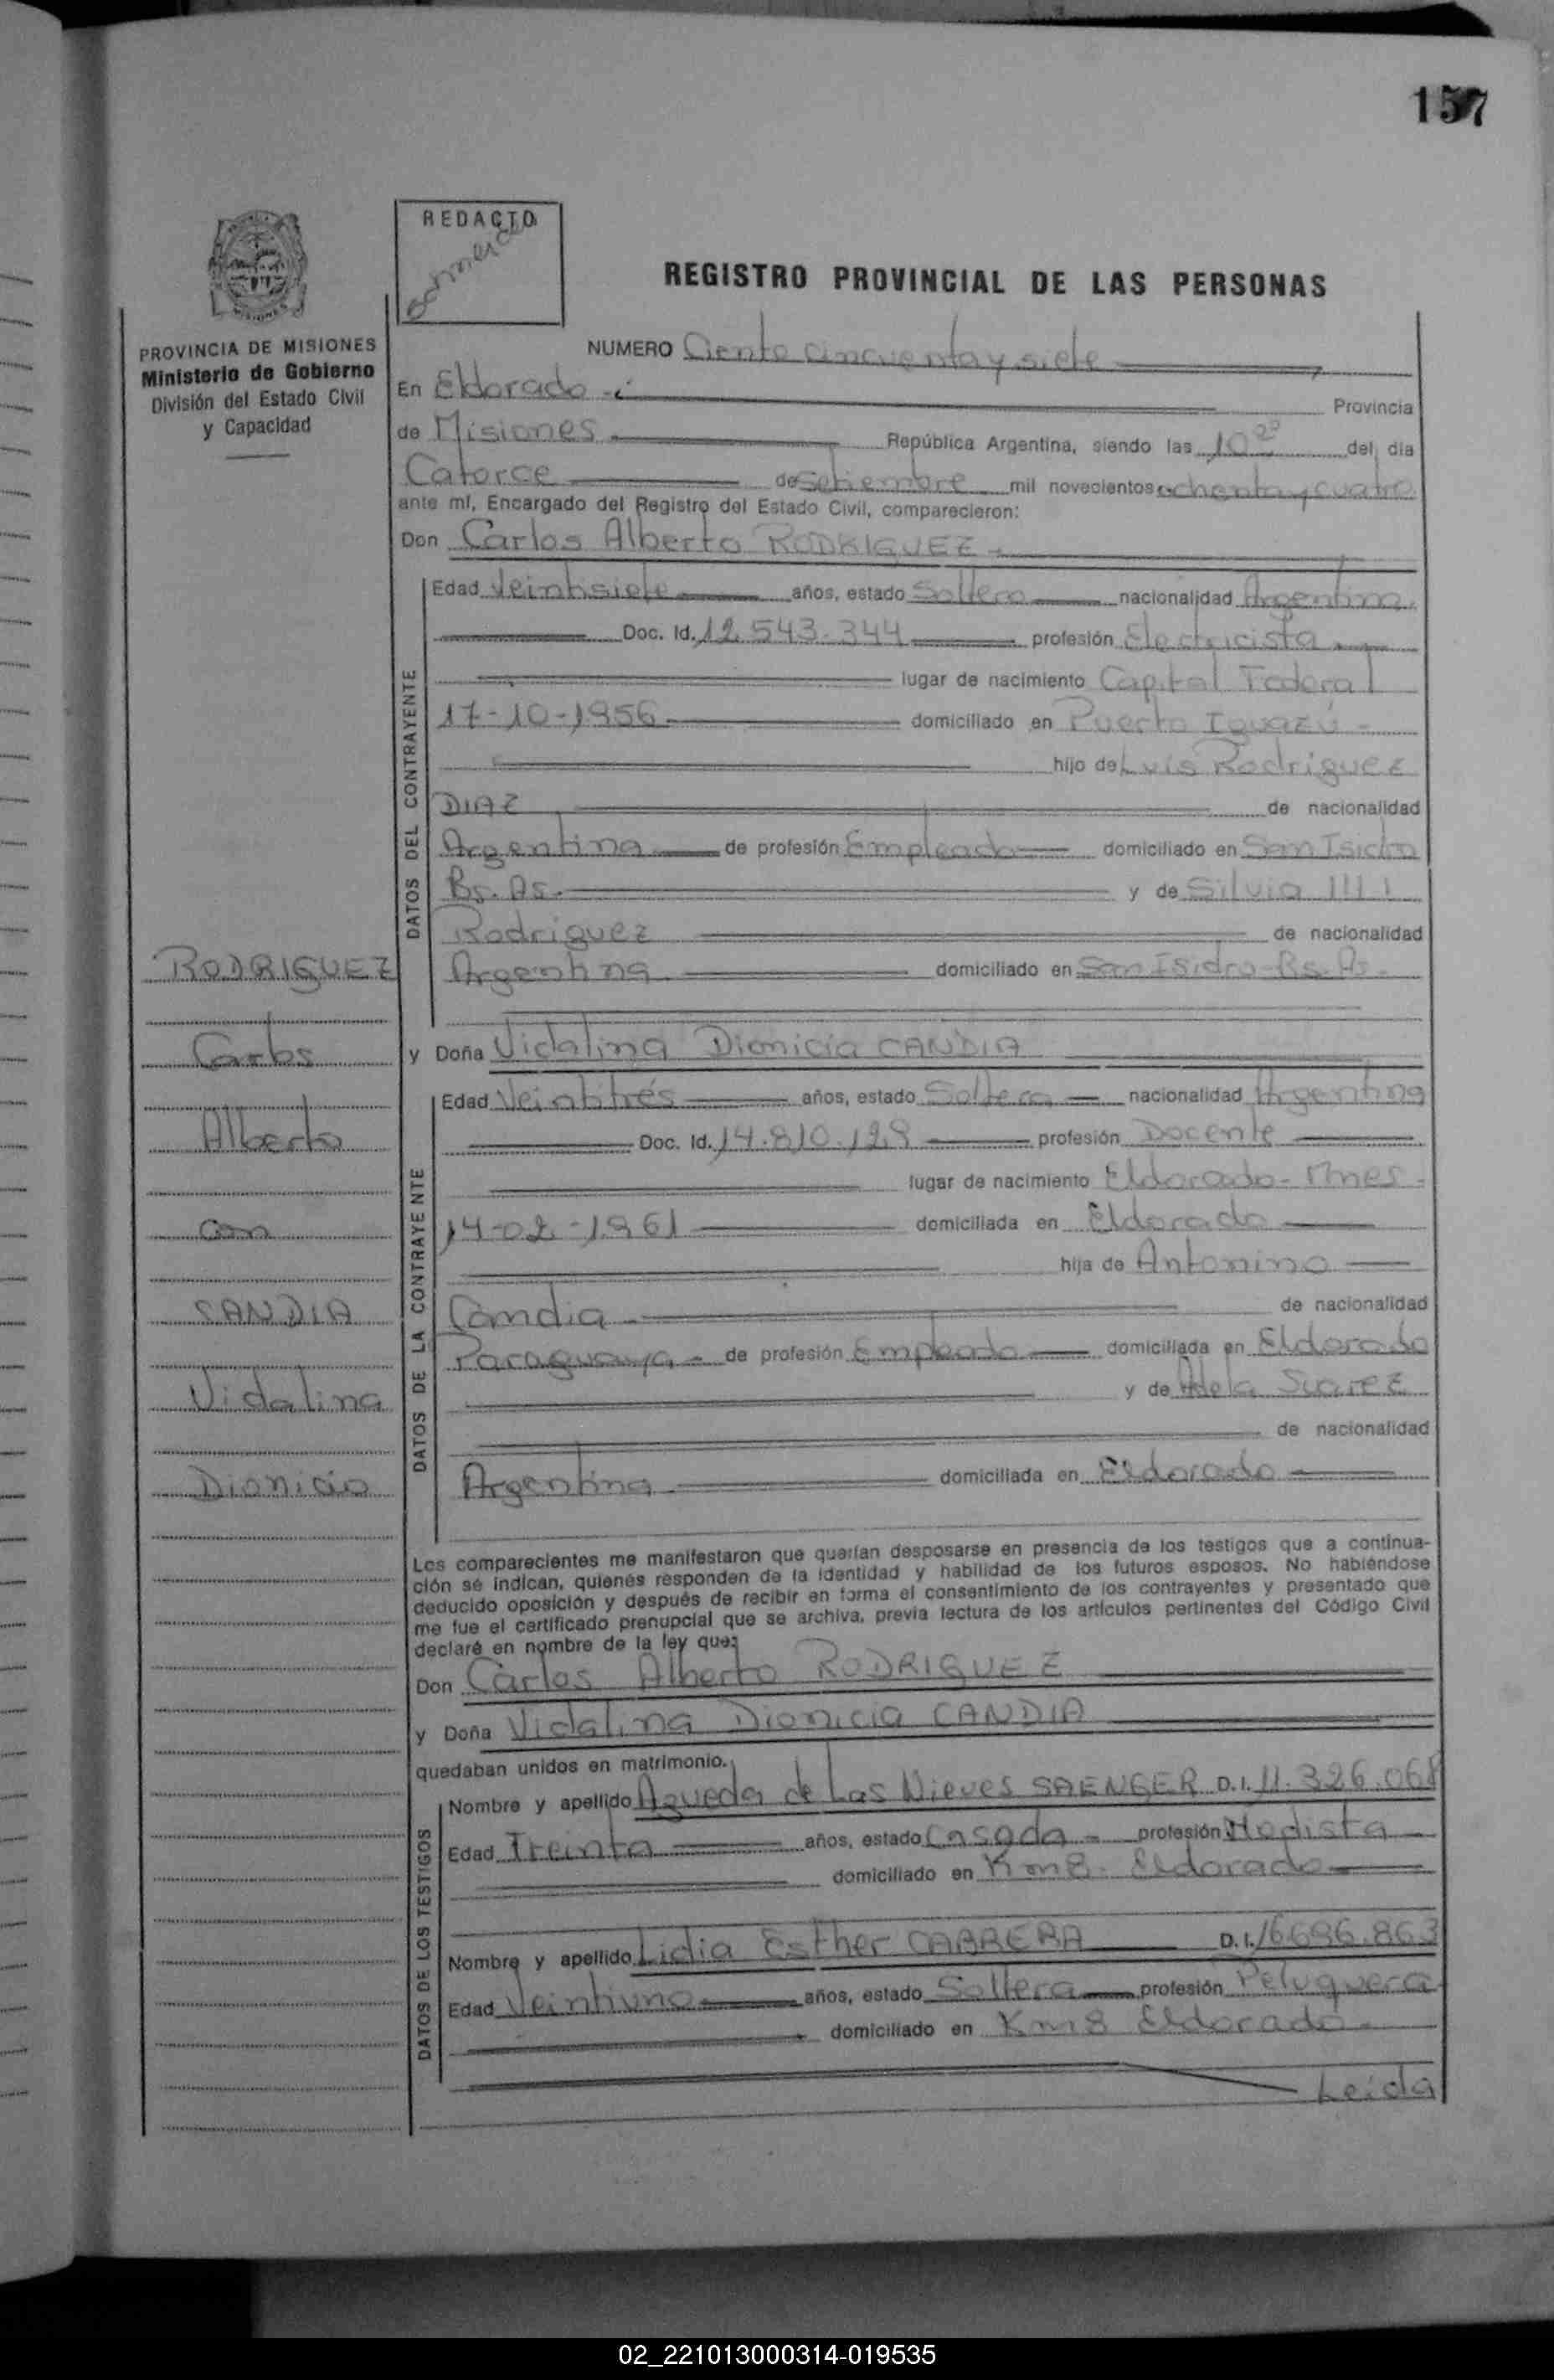 157
REDACTO
REGISTRO PROVINCIAL DE LAS PERSONAS
PROVINCIA DE MISIONES
Ministerio de Gobierno
División del Estado Civil
y Capacidad
NUMERO Ciento cincuenta y siete
En Eldorado Provincia
de Misiones República Argentina, siendo las del día
Catorce de Setiembre mil novecientos ochenta y cuatro
ante mí, Encargado del Registro del Estado Civil, comparecieron:
Don Carlos Alberto RODRIGUEZ
DATOS DEL CONTRAYENTE
Edad Veintisiete años, estado Soltero nacionalidad Argentina
Doc. Id. 12.543.344 profesión Electricista
lugar de nacimiento Capital Federal
17-10-1956 domiciliado en Puerto Iguazú
hijo de Luis Rodriguez
DIAZ de nacionalidad
Argentina de profesión Empleado domiciliado en San Isidro
Bs. As. y de Silvia
Rodriguez de nacionalidad
Argentina domiciliado en San Isidro-Bs. As.
RODRIGUEZ
Carlos
Alberto
Con
CANDIA
Vidalina
Dionicia
y Doña Vidalina Dionicia CANDIA
DATOS DE LA CONTRAYENTE
Edad Veintitrés años, estado Soltera nacionalidad Argentina
Doc. Id. 14.810.129 profesión Docente
lugar de nacimiento Eldorado-Mnes-
14-02-1961 domiciliada en Eldorado
hija de Antonino
Candia de nacionalidad
Paraguaya de profesión Empleado domiciliada en Eldorado
y de Adela Suarez
de nacionalidad
Argentina domiciliada en Eldorado
Los comparecientes me manifestaron que querían desposarse en presencia de los testigos que a continua-
ción se indican, quienes responden de la identidad y habilidad de los futuros esposos. No habiéndose
deducido oposición y después de recibir en forma el consentimiento de los contrayentes y presentado que
me fue el certificado prenupcial que se archiva, previa lectura de los artículos pertinentes del Código Civil
declaré en nombre de la ley que:
Don Carlos Alberto RODRIGUEZ
y Doña Vidalina Dionicia CANDIA
quedaban unidos en matrimonio.
DATOS DE LOS TESTIGOS
Nombre y apellido Agueda de Las Nieves SAENGER D.I. 11.326.068
Edad Treinta años, estado Casada profesión Modista
domiciliado en Km8- Eldorado
Nombre y apellido Lidia Esther CABRERA D.I. 16.696.863
Edad Veintiuno años, estado Soltera profesión Peluquera
domiciliado en Km8 Eldorado
Leida
02_221013000314-019535